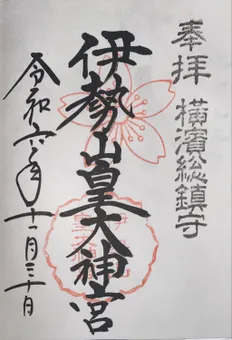 奉拝 横濱総鎮守
伊勢山皇大神宮
令和六年十一月三十日